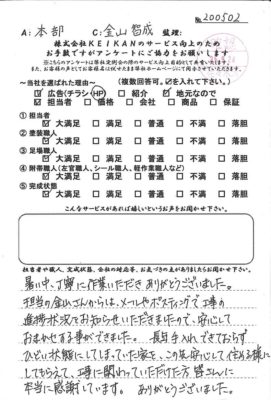 №200502
A:本部 C:金山智成 監理:
株式会社KEIKANのサービス向上のため
お手数ですがアンケートにご協力をお願いします
～当社を選ばれた理由～ (複数回答可。☑を入れて下さい。)
☑広告(チラシ・HP) □紹介 ☑地元なので
☑担当者 □価格 □会社 □商品 □保証
①担当者
☑大満足 □満足 □普通 □不満 □落胆
②塗装職人
☑大満足 □満足 □普通 □不満 □落胆
③足場職人
☑大満足 □満足 □普通 □不満 □落胆
④附帯職人(左官職人、シール職人、軽作業職人など)
☑大満足 □満足 □普通 □不満 □落胆
⑤完成状態
☑大満足 □満足 □普通 □不満 □落胆
こんなサービスがあれば嬉しいというお声をお聞かせ下さい。
担当者や職人、完成状態、会社の対応等、お気づきの点がありましたらお聞かせ下さい
暑い中、丁寧に作業いただき ありがとうございました。
担当の金山さんからは、メールやポスティングで工事の
進捗状況をお知らせいただきましたので、安心して
おまかせする事ができました。 長年手入れできておらず
ひどい状態にしてしまっていた家を、この先安心して住める様に
してもらえて、工事に関わっていただけた皆さんに
本当に感謝しています。 ありがとうございました。